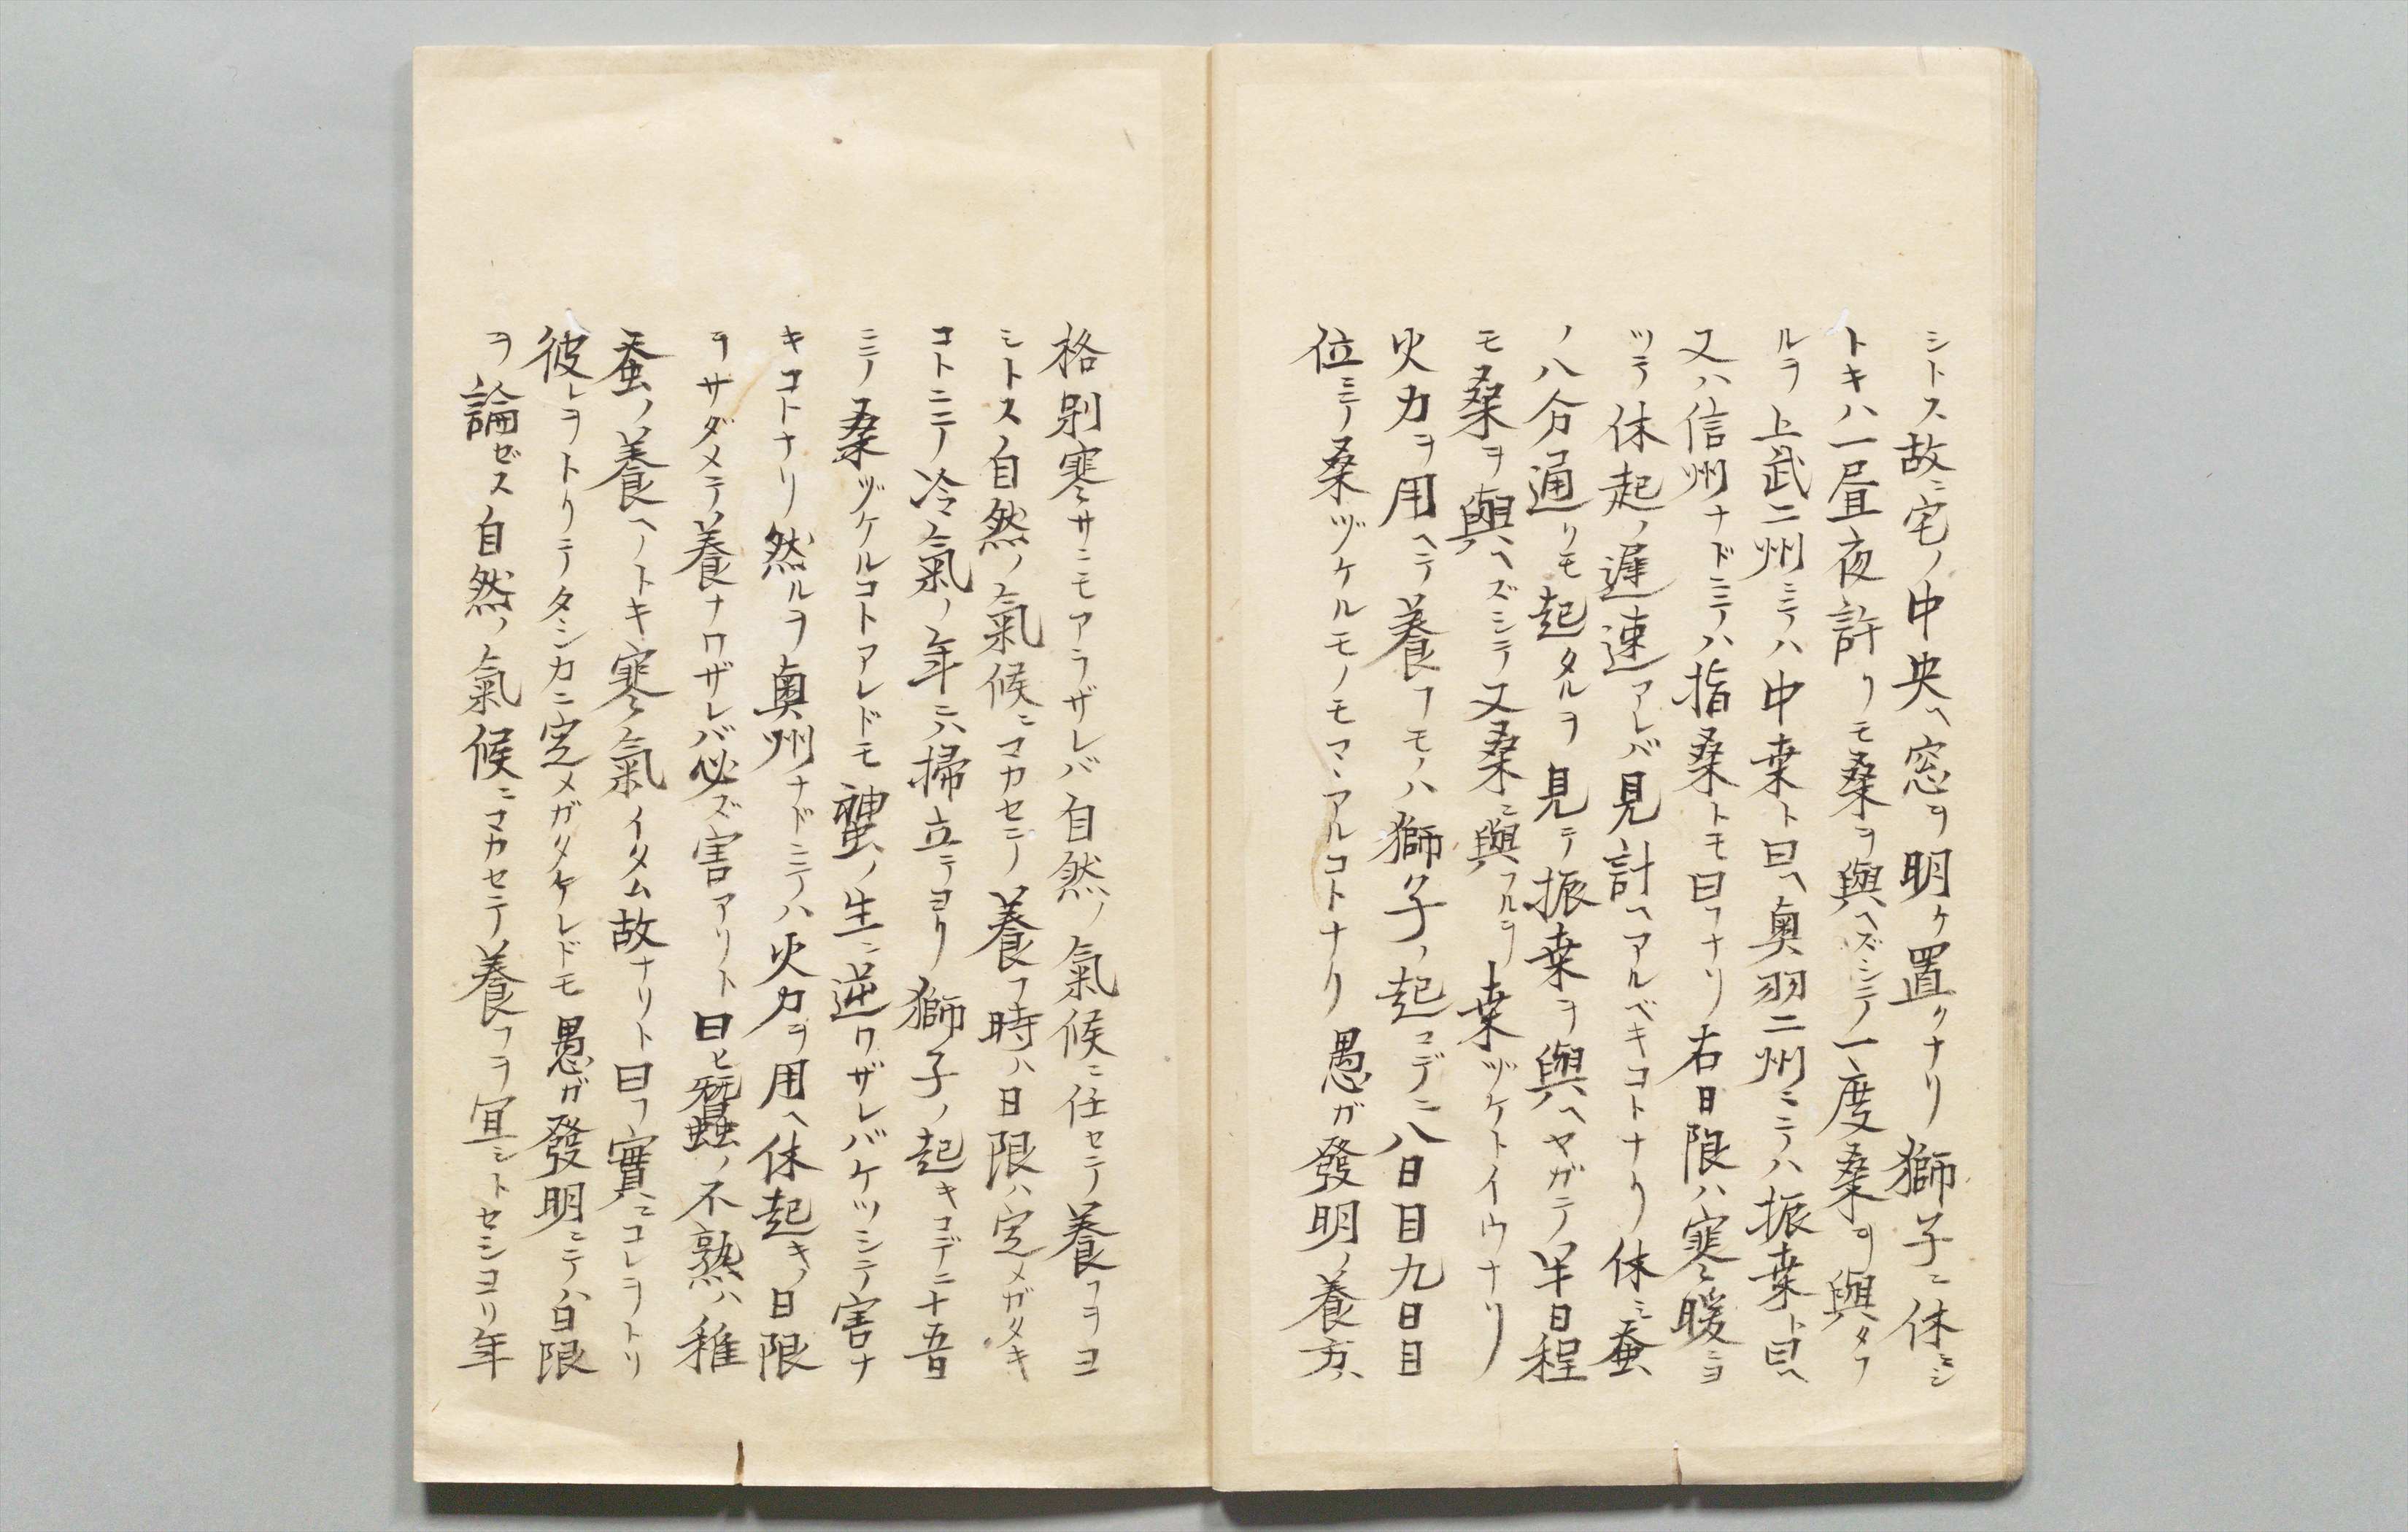 シトス故ニ宅ノ中央ヘ窓ヲ明ケ置クナリ獅子ニ休ミシ
トキハ一昼夜許リモ桑ヲ與ヘズシテ一度桑ヲ與タフ
ルヲ上武二州ニテハ中桒ト曰ヘ奥羽二州ニテハ振桒ト曰ヘ
又ハ信州ナドニテハ指桑トモ曰フナリ右日限ハ寒暖ニヨ
ツテ休起ノ遅速アレバ見計ヘアルベキコトナリ休ミ蚕
ノ八分通リモ起タルヲ見テ振桒ヲ與ヘヤガテ半日程
モ桑ヲ與ヘズシテ又桑ニ與フルヲ桒ヅケトイウナリ
火力ヲ用ヘテ養フモノハ獅子ノ起マデニ八日目九日目
位ニテ桑ヅケルモノモマヽアルコトナリ愚ガ發明ノ養方ハ
格別寒サニモアラザレバ自然ノ氣候ニ任セテ養フヲヨ
シトス自然ノ氣候ニマカセテ養フ時ハ日限ハ定メガタキ
コトニテ冷氣ノ年ニハ掃立テヨリ獅子ノ起キマデニ十五日
ニテ桑ヅケルコトアレドモ蟬ノ生ニ逆ワザレバケツシテ害ナ
キコトナリ然ルヲ奥州ナドニテハ火力ヲ用ヘ休起キノ日限
ヲサダメテ養ナワザレバ必ズ害アリト曰ヒ蠶ノ不熟ハ稚
蚕ノ養ヘノトキ寒氣イタム故ナリト曰フ實ニコレヲトリ
彼レヲトリテタシカニ定メガタケレドモ愚ガ發明ニテハ日限
ヲ論ゼス自然ノ氣候ニマカセテ養フヲ冝シトセシヨリ年